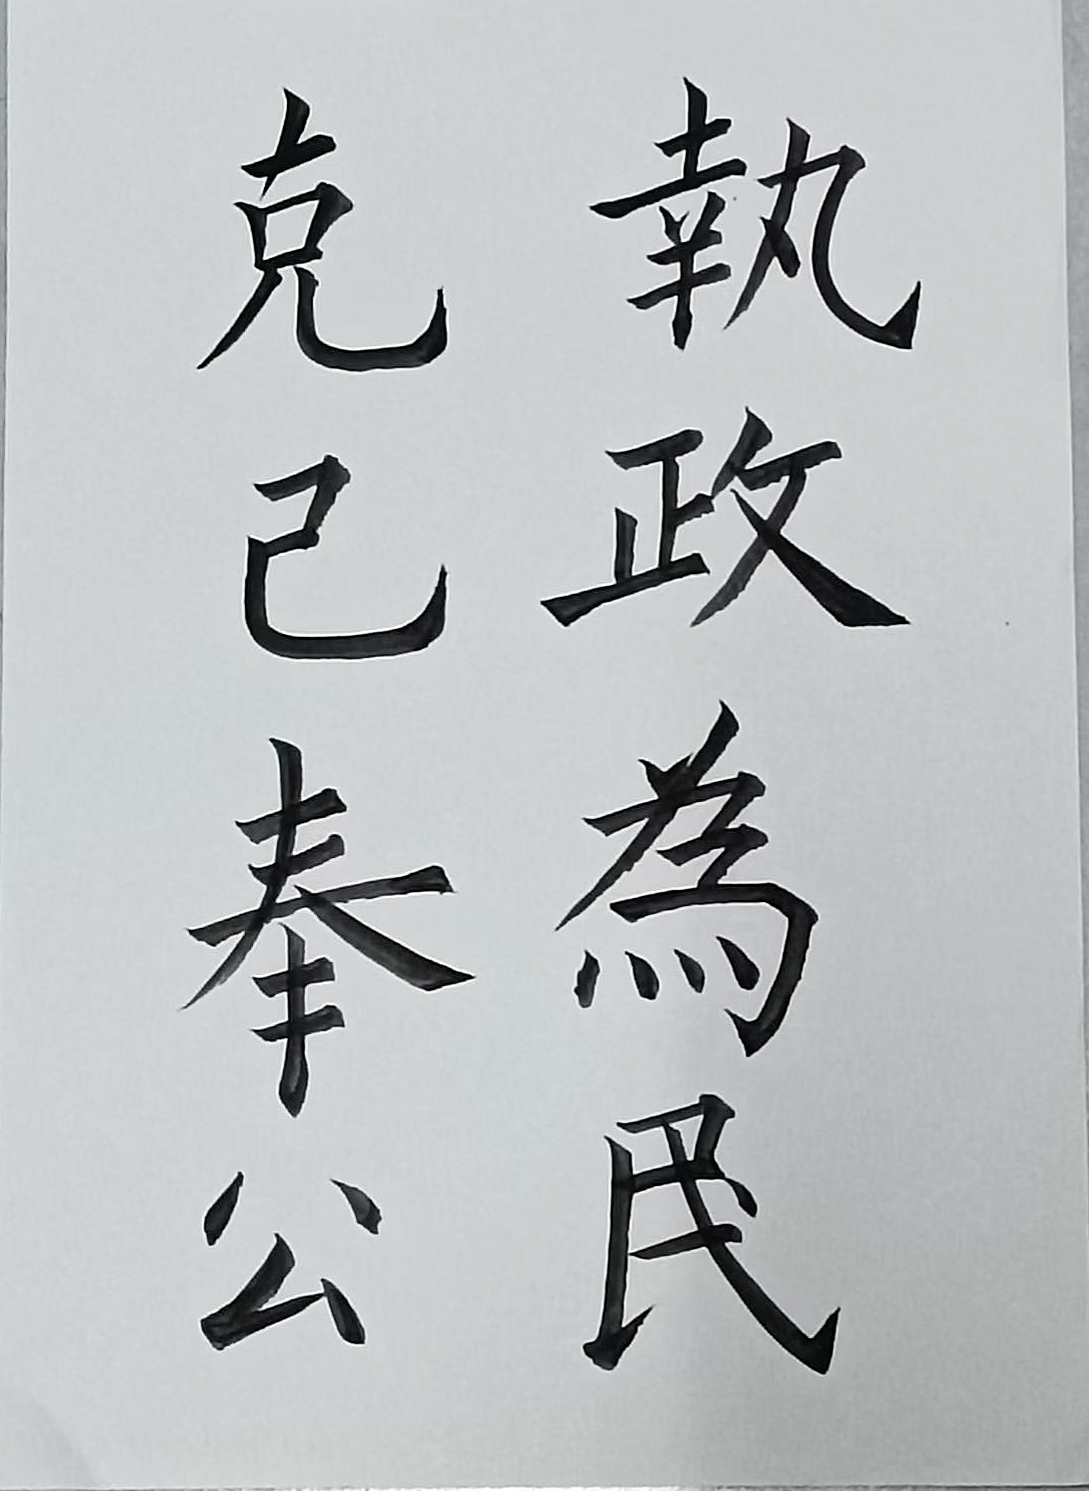 執政為民
克己奉公